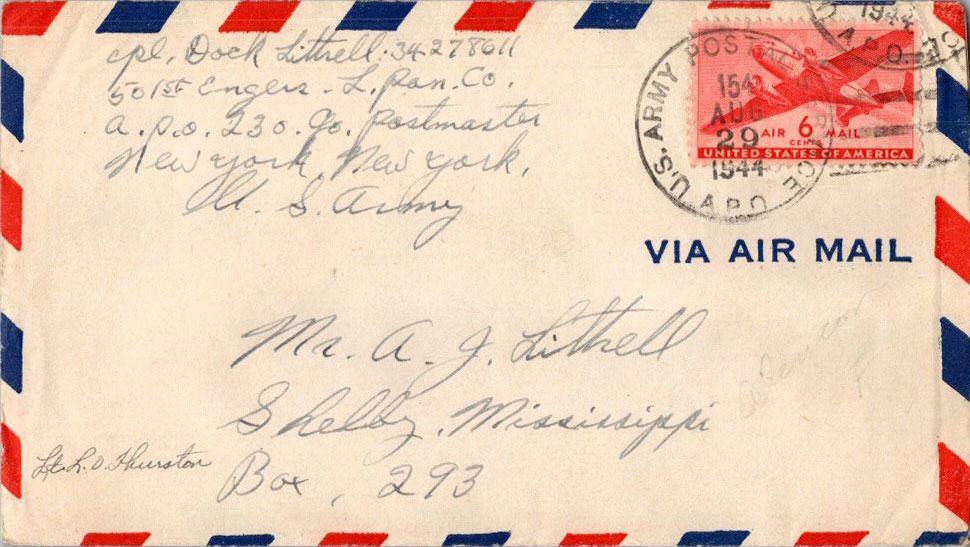 cpl. Dock Littrell. 34278611
501st Engers. L. Pon. Co.
A.P.O. 230. Go. Postmaster
New York, New York,
U. S. Army
U.S. ARMY POSTAL SERVICE
154
AUG
29
1944
A.P.O.
1944
A.P.O.
AIR 6 MAIL
CENTS
UNITED STATES OF AMERICA
VIA AIR MAIL
Mr. A. J. Littrell
Shelby, Mississippi
Box, 293
Lt. L. O. Thurston